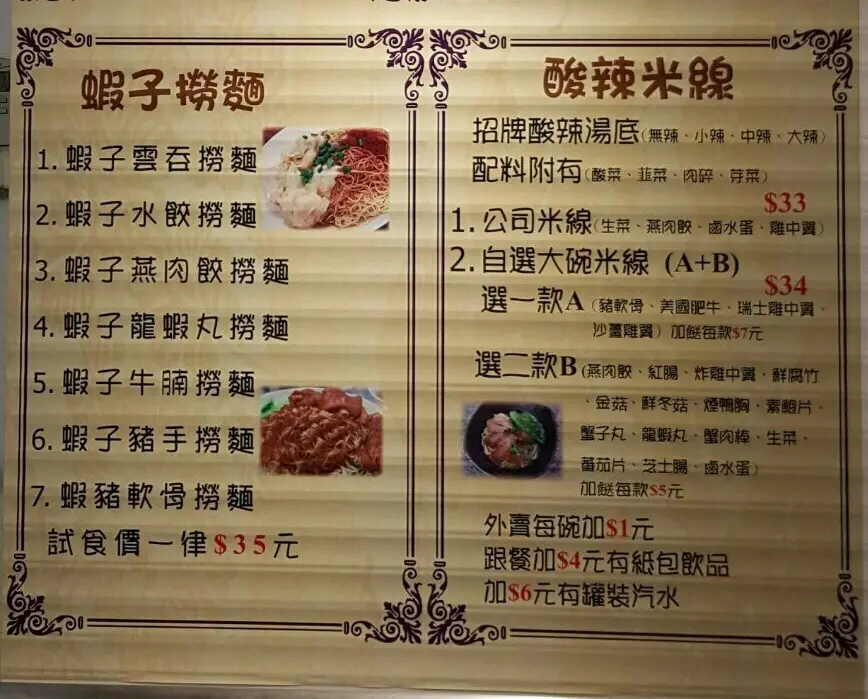 蝦子撈麵
1. 蝦子雲吞撈麵
2. 蝦子水餃撈麵
3. 蝦子燕肉餃撈麵
4. 蝦子龍蝦丸撈麵
5. 蝦子牛腩撈麵
6. 蝦子豬手撈麵
7. 蝦豬軟骨撈麵
試食價一律$35元
酸辣米線
招牌酸辣湯底(無辣、小辣、中辣、大辣)
配料附有(酸菜、韮菜、肉碎、芽菜)
$33
1. 公司米線(生菜、燕肉餃、鹵水蛋、雞中翼)
2. 自選大碗米線 (A+B)
$34
選一款A (豬軟骨、美國肥牛、瑞士雞中翼、
沙薑雞翼) 加餸每款$7元
選二款B (燕肉餃、紅腸、炸雞中翼、鮮腐竹
、金菇、鮮冬菇、煙鴨胸、素鮑片、
蟹子丸、龍蝦丸、蟹肉棒、生菜、
蕃茄片、芝士腸、鹵水蛋)
加餸每款$5元
外賣每碗加$1元
跟餐加$4元有紙包飲品
加$6元有罐裝汽水